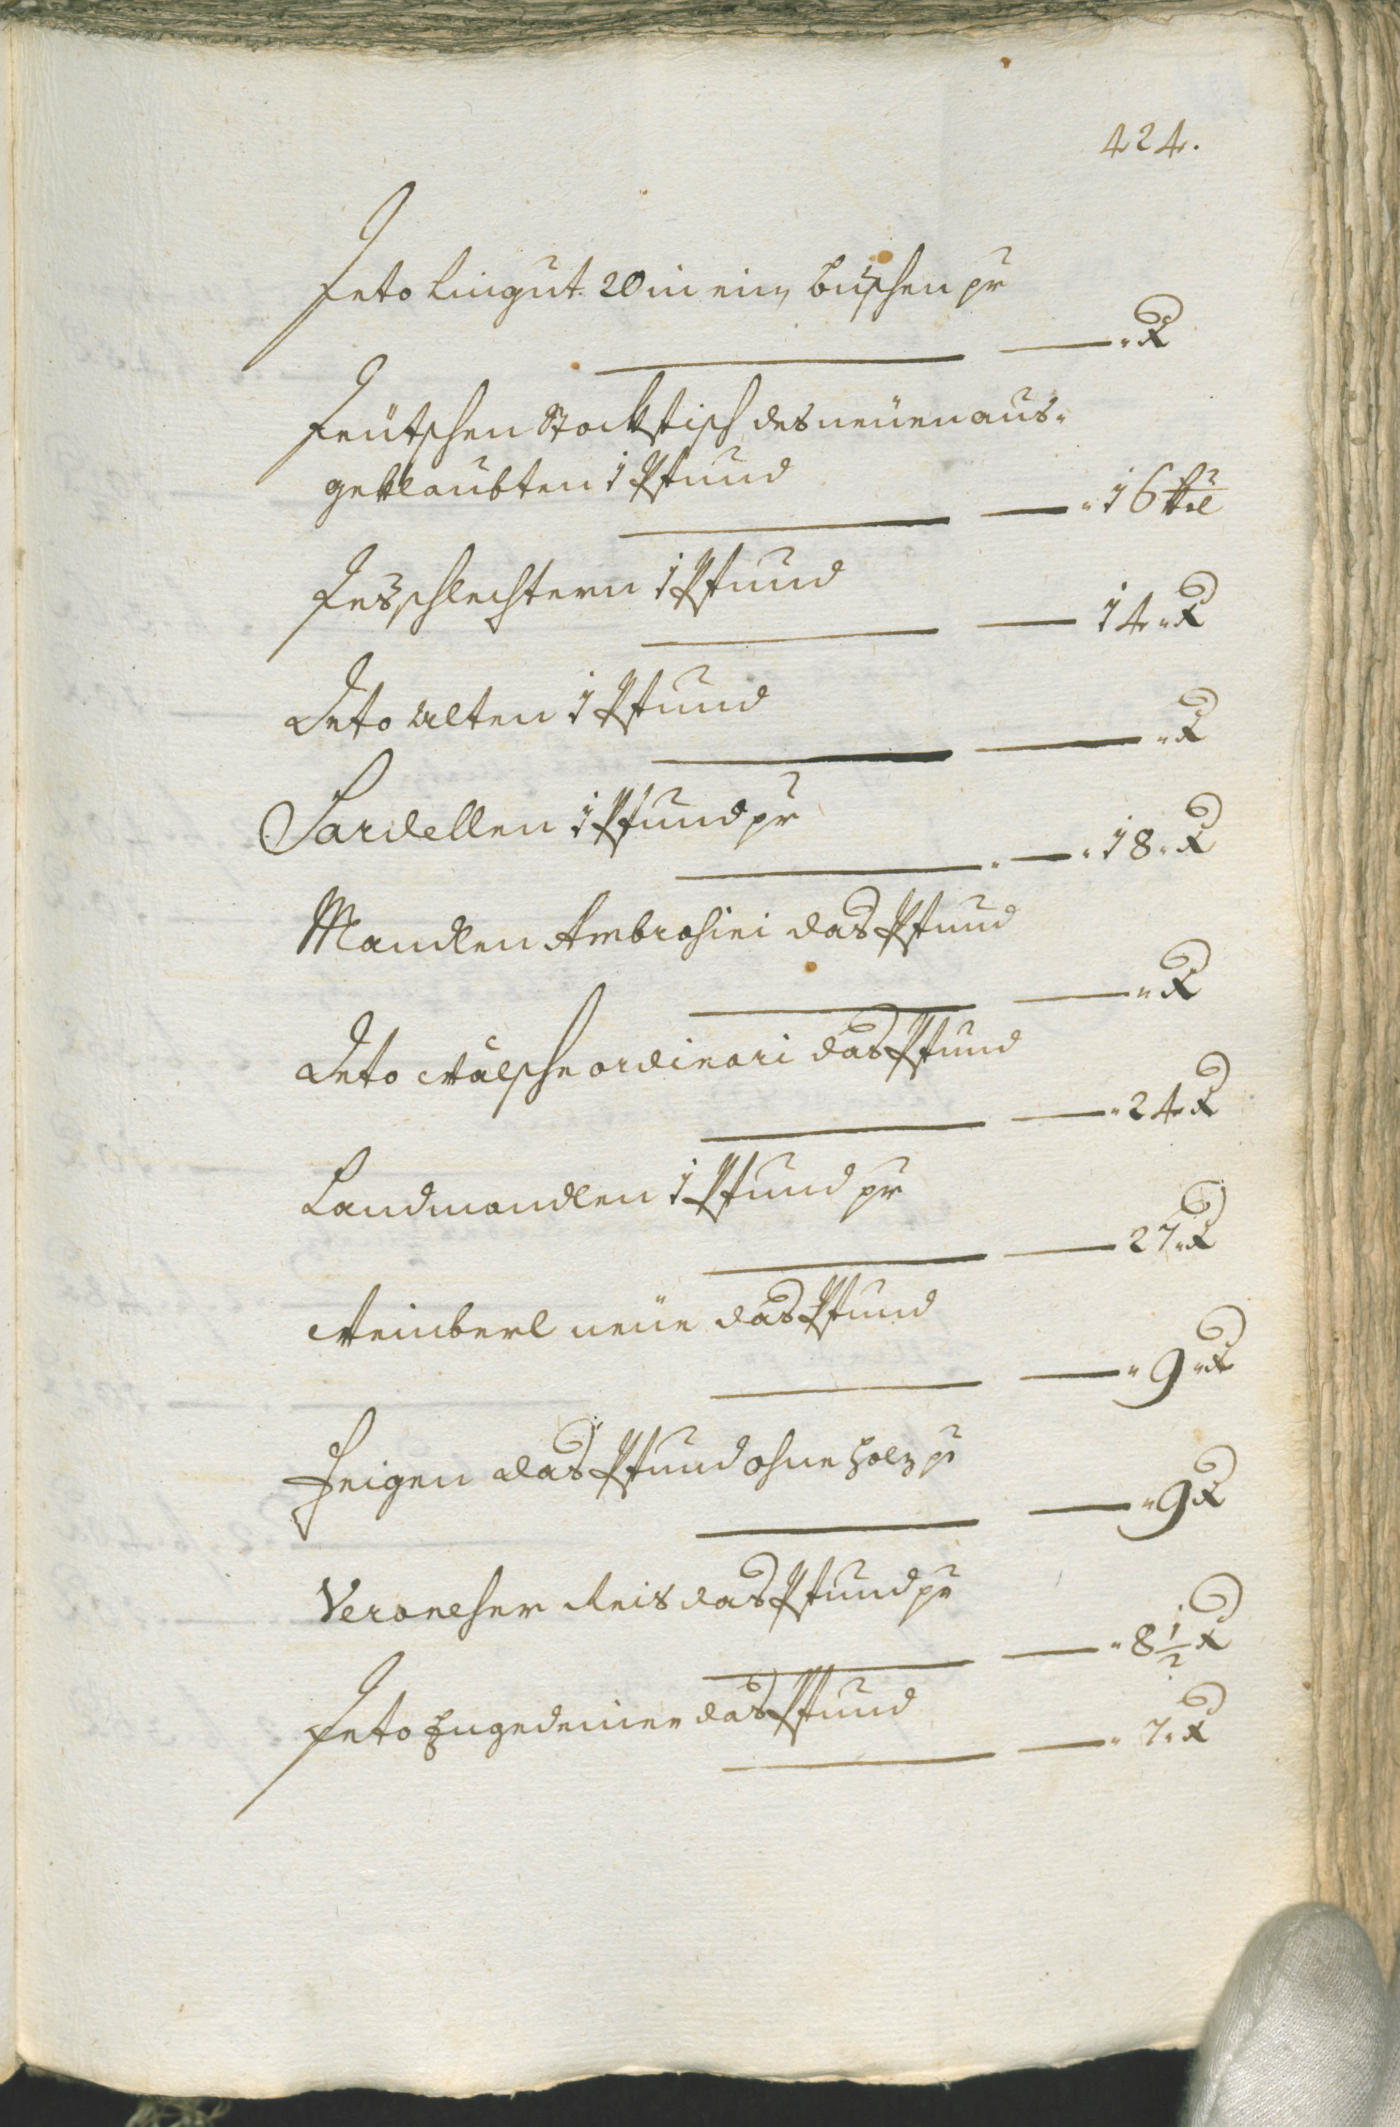 424.
Deto Lingut 20 in ein buschen pr
x
Deütschen Stockfisch des neüen aus-
geklaubten 1 Pfund
16
Des schlechtern 1 Pfund
14 x
Deto alten 1 Pfund
x
Sardellen 1 Pfund pr
18 x
Mandlen Ambrosini das Pfund
x
Deto Wälsche ordinari das Pfund
24 x
Landmandlen 1 Pfund pr
27 x
Weinberl neüe das Pfund
9 x
Feigen das Pfund ohne Holz pr
9 x
Veroneser Reis das Pfund pr
8 1/2 x
Deto das Pfund
7 x